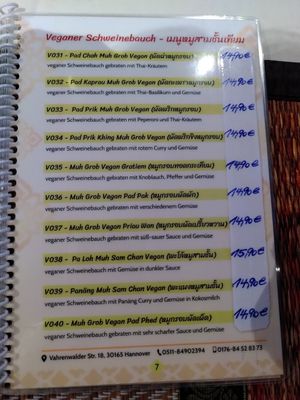 Veganer Schweinebauch - เมนูหมูสามชั้นเทียม
V031 - Pad Chah Muh Grob Vegan (ผัดฉ่าหมูกรอบ) 14,90€
veganer Schweinebauch gebraten mit Thai-Kräutern
V032 - Pad Kaprau Muh Grob Vegan (ผัดกะเพราหมูกรอบ) 14,90€
veganer Schweinebauch gebraten mit Thai-Basilikum und Gemüse
V033 - Pad Prik Muh Grob Vegan (ผัดพริกหมูกรอบ) 14,90€
veganer Schweinebauch gebraten mit Peperoni und Thai-Kräutern
V034 - Pad Prik Khing Muh Grob Vegan (ผัดพริกขิงหมูกรอบ) 14,90€
veganer Schweinebauch gebraten mit rotem Curry und Gemüse
V035 - Muh Grob Vegan Gratiem (หมูกรอบทอดกระเทียม) 14,90€
veganer Schweinebauch gebraten mit Knoblauch, Pfeffer und Gemüse
V036 - Muh Grob Vegan Pad Pak (หมูกรอบผัดผัก) 14,90€
veganer Schweinebauch gebraten mit verschiedenem Gemüse
V037 - Muh Grob Vegan Priau Wan (หมูกรอบผัดเปรี้ยวหวาน) 14,90€
veganer Schweinebauch gebraten mit süß-sauer Sauce und Gemüse
V038 - Pa Loh Muh Sam Chan Vegan (พะโล้หมูสามชั้น) 15,90€
veganer Schweinebauch mit Gemüse in dunkler Sauce
V039 - Panäng Muh Sam Chan Vegan (พะแนงหมูสามชั้น) 14,90€
veganer Schweinebauch mit Panäng Curry und Gemüse in Kokosmilch
V040 - Muh Grob Vegan Pad Phed (หมูกรอบผัดเผ็ด) 14,90€
veganer Schweinebauch gebraten mit sehr scharfer Sauce und Gemüse
Vahrenwalder Str. 18, 30165 Hannover 0511-84902394 0176-84 52 83 73
7